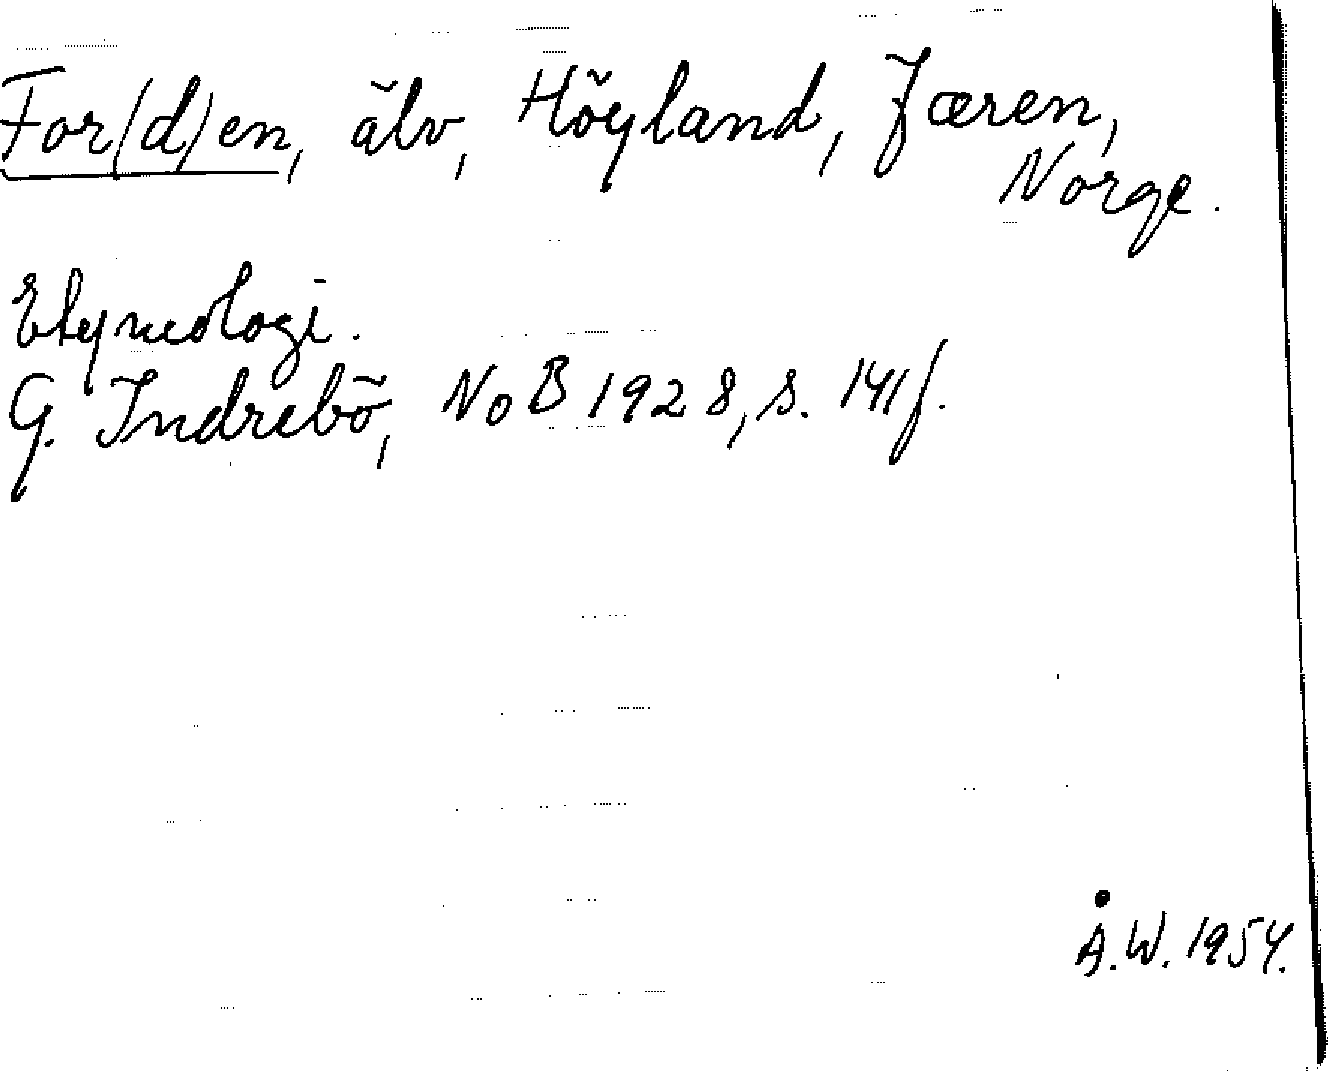 For(d)en, älv, Höyland, Jæren,
Norge.
Etymologi.
G. Indrebö, NoB 1928, s. 141f.
Å.W. 1954.